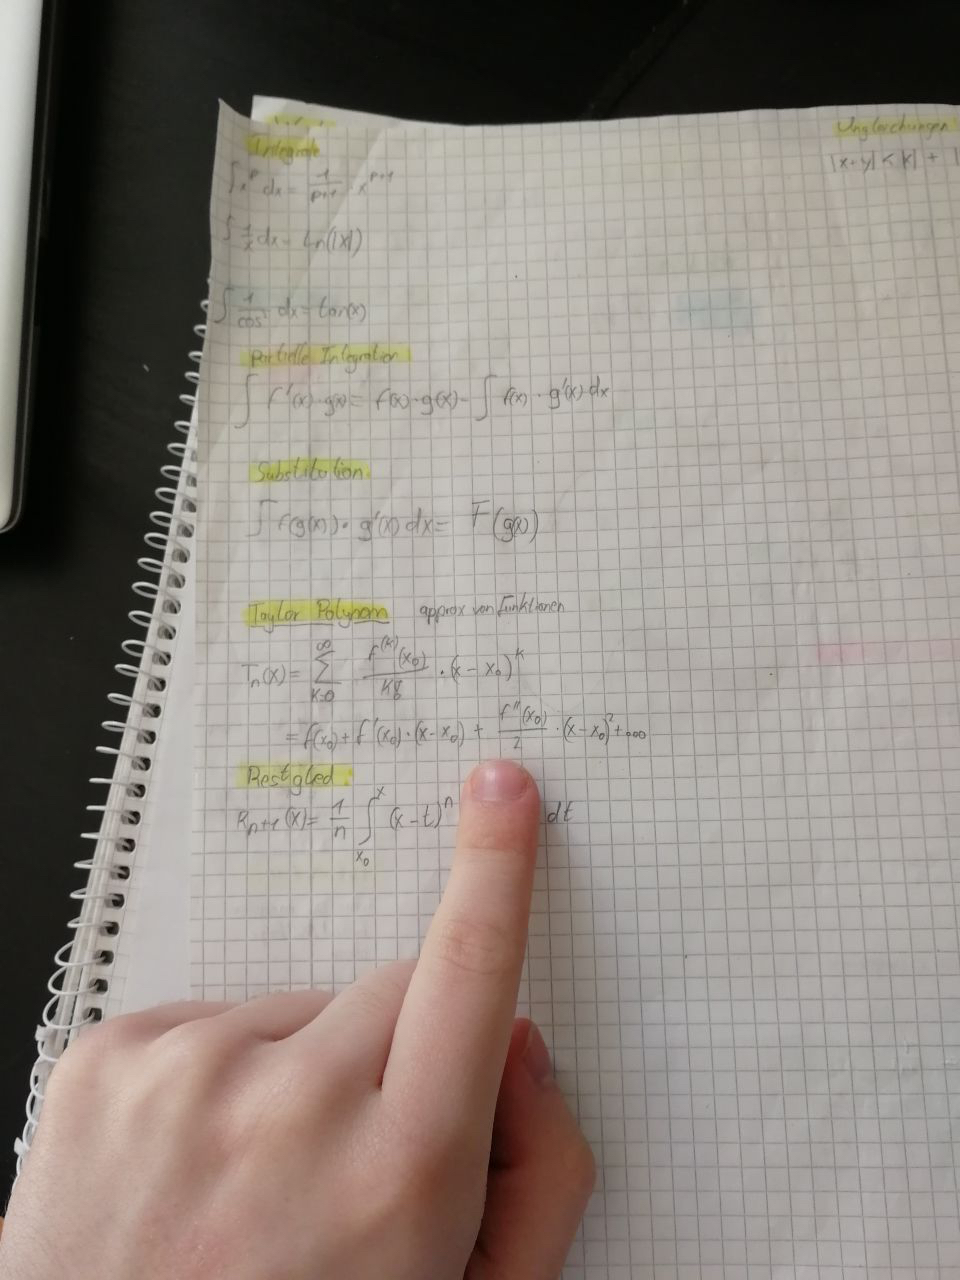 Integrale
∫ x^p dx = 1/(p+1) · x^(p+1)
∫ 1/x dx = ln(|x|)
∫ 1/cos² dx = tan(x)
Partielle Integration
∫ f'(x)·g(x) = f(x)·g(x) - ∫ f(x) · g'(x) dx
Substitution
∫ f(g(x)) · g'(x) dx = F(g(x))
Taylor Polynom approx von Funktionen
T_n(x) = ∑_{k=0}^{∞} f^(k)(x_0)/k! · (x - x_0)^k
= f(x_0) + f'(x_0)·(x-x_0) + f''(x_0)/2 · (x-x_0)² + ...
Restglied:
R_{n+1}(x) = 1/n ∫_{x_0}^{x} (x-t)^n dt
Ungleichungen
|x+y| < |x| + |